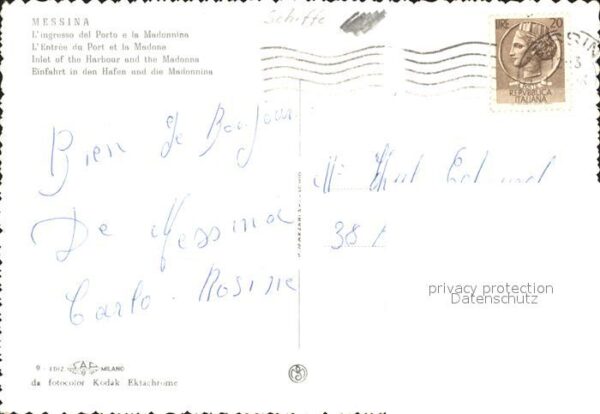 MESSINA
L'ingresso del Porto e la Madonnina
L'Entrée du Port et la Madone
Inlet of the Harbour and the Madonna
Einfahrt in den Hafen und die Madonnina
Schiffe
LIRE 20
REPVBBLICA
ITALIANA
Bien de Bonjour
De Messina
Carlo - Rosine
38
privacy protection
Datenschutz
9 - EDIZ. SAF MILANO
da fotocolor Kodak Ektachrome